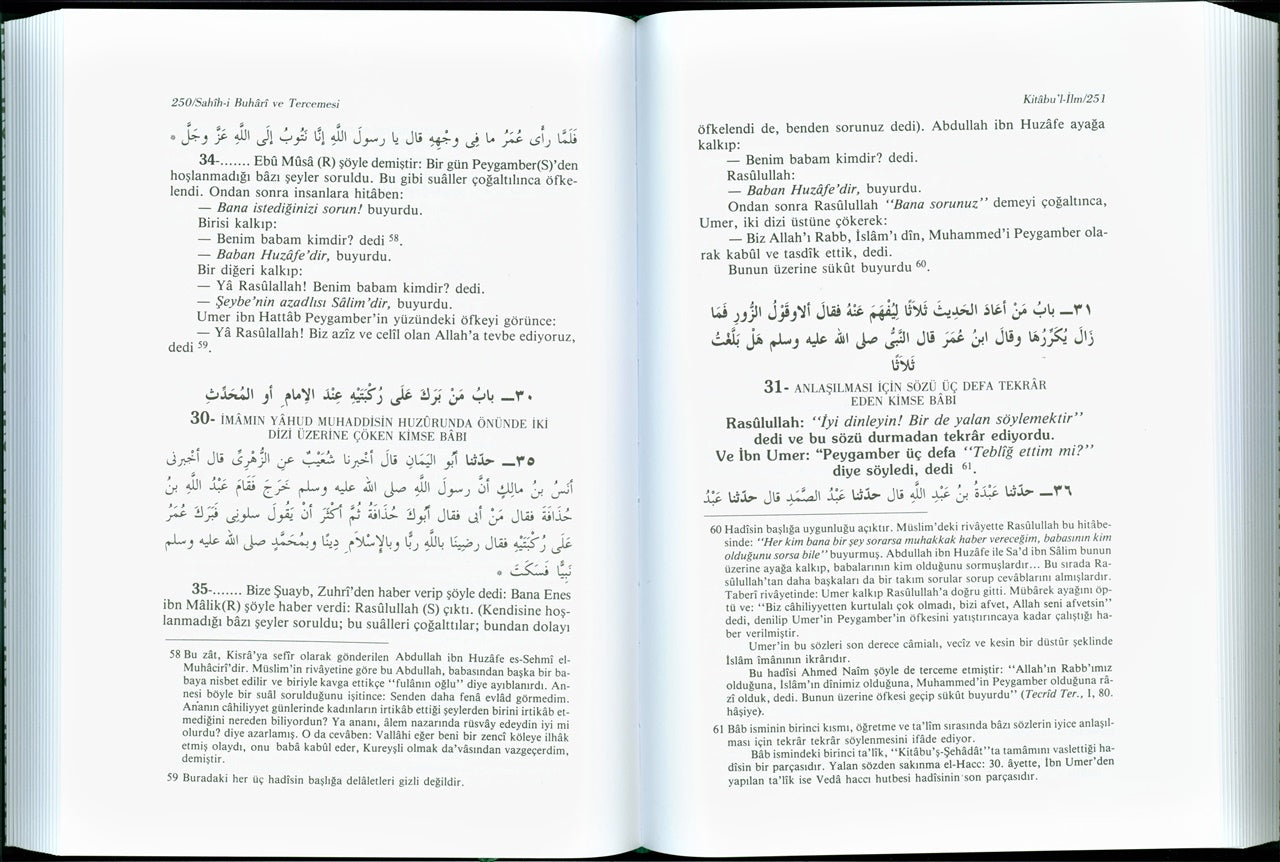 250/Sahîh-i Buhârî ve Tercemesi
فَلَمَّا رأى عُمَرُ ما فِى وجْهِهِ قال يا رسولَ اللَّهِ إنَّا نَتُوبُ إلى اللَّهِ عَزَّ وجَلَّ *
34-....... Ebû Mûsâ (R) şöyle demiştir: Bir gün Peygamber(S)’den
hoşlanmadığı bâzı şeyler soruldu. Bu gibi suâller çoğaltılınca öfke-
lendi. Ondan sonra insanlara hitâben:
— Bana istediğinizi sorun! buyurdu.
Birisi kalkıp:
— Benim babam kimdir? dedi 58.
— Baban Huzâfe’dir, buyurdu.
Bir diğeri kalkıp:
— Yâ Rasûlallah! Benim babam kimdir? dedi.
— Şeybe’nin azadlısı Sâlim’dir, buyurdu.
Umer ibn Hattâb Peygamber’in yüzündeki öfkeyi görünce:
— Yâ Rasûlallah! Biz azîz ve celîl olan Allah’a tevbe ediyoruz,
dedi 59.
٣٠— بابُ مَنْ بَرَكَ عَلَى رُكْبَتَيْهِ عِنْدَ الإمامِ أو المُحَدِّثِ
30- İMÂMIN YÂHUD MUHADDİSİN HUZÛRUNDA ÖNÜNDE İKİ
DİZİ ÜZERİNE ÇÖKEN KİMSE BÂBI
٣٥— حدّثنا أبُو اليَمَانِ قال أخْبرنا شُعَيْبٌ عنِ الزُّهْرِىِّ قال أخبرنى
أنَسُ بنُ مالِكٍ أنَّ رسولَ اللَّهِ صلى الله عليه وسلم خَرَجَ فَقَامَ عَبْدُ اللَّهِ بنُ
حُذَافَةَ فقال مَنْ أبى فقال أبُوكَ حُذَافَةُ ثُمَّ أكْثَرَ أنْ يَقُولَ سلونِى فَبَرَكَ عُمَرُ
عَلَى رُكْبَتَيْهِ فقال رضِينَا باللَّهِ ربًّا وبالإسْلاَمِ دِينًا وبمُحَمَّدٍ صلى الله عليه وسلم
نَبِيًّا فَسَكَتَ *
35-....... Bize Şuayb, Zuhrî’den haber verip şöyle dedi: Bana Enes
ibn Mâlik(R) şöyle haber verdi: Rasûlullah (S) çıktı. (Kendisine hoş-
lanmadığı bâzı şeyler soruldu; bu suâlleri çoğalttılar; bundan dolayı
58 Bu zât, Kisrâ’ya sefîr olarak gönderilen Abdullah ibn Huzâfe es-Sehmî el-
Muhâcirî’dir. Müslim’in rivâyetine göre bu Abdullah, babasından başka bir ba-
baya nisbet edilir ve biriyle kavga ettikçe “fulânın oğlu” diye ayıblanırdı. An-
nesi böyle bir suâl sorulduğunu işitince: Senden daha fenâ evlâd görmedim.
Ananın câhiliyyet günlerinde kadınların irtikâb ettiği şeylerden birini irtikâb et-
mediğini nereden biliyordun? Ya ananı, âlem nazarında rüsvây edeydin iyi mi
olurdu? diye azarlamış. O da cevâben: Vallâhi eğer beni bir zencî köleye ilhâk
etmiş olaydı, onu babâ kabûl eder, Kureyşli olmak da’vâsından vazgeçerdim,
demiştir.
59 Buradaki her üç hadîsin başlığa delâletleri gizli değildir.
Kitâbu’l-İlm/251
öfkelendi de, benden sorunuz dedi). Abdullah ibn Huzâfe ayağa
kalkıp:
— Benim babam kimdir? dedi.
Rasûlullah:
— Baban Huzâfe’dir, buyurdu.
Ondan sonra Rasûlullah “Bana sorunuz” demeyi çoğaltınca,
Umer, iki dizi üstüne çökerek:
— Biz Allah’ı Rabb, İslâm’ı dîn, Muhammed’i Peygamber ola-
rak kabûl ve tasdîk ettik, dedi.
Bunun üzerine sükût buyurdu 60.
٣١— بابُ مَنْ أعَادَ الحَدِيثَ ثَلاَثًا لِيُفْهَمَ عَنْهُ فقالَ ألاوقَوْلُ الزُّورِ فَمَا
زَالَ يُكَرِّرُهَا وقال ابنُ عُمَرَ قال النَّبىُّ صلى الله عليه وسلم هَلْ بَلَّغْتُ
ثَلاَثًا
31- ANLAŞILMASI İÇİN SÖZÜ ÜÇ DEFA TEKRÂR
EDEN KİMSE BÂBI
Rasûlullah: “İyi dinleyin! Bir de yalan söylemektir”
dedi ve bu sözü durmadan tekrâr ediyordu.
Ve İbn Umer: “Peygamber üç defa “Teblîğ ettim mi?”
diye söyledi, dedi 61.
٣٦— حدّثنا عَبْدَةُ بنُ عَبْدِ اللَّهِ قال حدّثنا عَبْدُ الصَّمَدِ قال حدّثنا عَبْدُ
60 Hadîsin başlığa uygunluğu açıktır. Müslim’deki rivâyette Rasûlullah bu hitâbe-
sinde: “Her kim bana bir şey sorarsa muhakkak haber vereceğim, babasının kim
olduğunu sorsa bile” buyurmuş. Abdullah ibn Huzâfe ile Sa’d ibn Sâlim bunun
üzerine ayağa kalkıp, babalarının kim olduğunu sormuşlardır... Bu sırada Ra-
sûlullah’tan daha başkaları da bir takım sorular sorup cevâblarını almışlardır.
Taberî rivâyetinde: Umer kalkıp Rasûlullah’a doğru gitti. Mübârek ayağını öp-
tü ve: “Biz câhiliyyetten kurtulalı çok olmadı, bizi afvet, Allah seni afvetsin”
dedi, denilip Umer’in Peygamber’in öfkesini yatıştırıncaya kadar çalıştığı ha-
ber verilmiştir.
Umer’in bu sözleri son derece câmialı, vecîz ve kesin bir düstûr şeklinde
İslâm îmânının ikrârıdır.
Bu hadîsi Ahmed Naîm şöyle de terceme etmiştir: “Allah’ın Rabb’ımız
olduğuna, İslâm’ın dînimiz olduğuna, Muhammed’in Peygamber olduğuna râ-
zî olduk, dedi. Bunun üzerine öfkesi geçip sükût buyurdu” (Tecrîd Ter., I, 80.
hâşiye).
61 Bâb isminin birinci kısmı, öğretme ve ta’lîm sırasında bâzı sözlerin iyice anlaşıl-
ması için tekrâr tekrâr söylenmesini ifâde ediyor.
Bâb ismindeki birinci ta’lîk, “Kitâbu’ş-Şehâdât”ta tamâmını vaslettiği ha-
dîsin bir parçasıdır. Yalan sözden sakınma el-Hacc: 30. âyette, İbn Umer’den
yapılan ta’lîk ise Vedâ haccı hutbesi hadîsinin son parçasıdır.